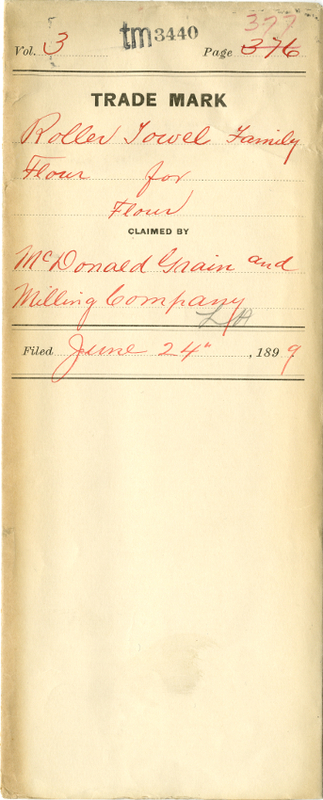 377
Vol. 3 tm3440 Page 376
TRADE MARK
Roller Towel Family
Flour for
Flour
CLAIMED BY
McDonald Grain and
Milling Company
Filed June 24" , 1899